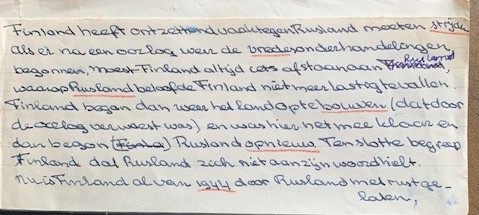 Finland heeft ontzettend vaak tegen Rusland moeten strijden
Als er na een oorlog weer de vredesonderhandelingen
begonnen, moest Finland altijd iets afstaan aan Rusland,
waarop Rusland beloofde Finland niet meer lastig te vallen.
Finland begon dan weer het land op te bouwen (dat door
de oorlog verwoest was) en was hier net mee klaar en
dan begon (Finland) Rusland opnieuw. Ten slotte begreep
Finland dat Rusland zich niet aan zijn woord hielt.
Nu is Finland al van 1944 door Rusland met rust ge-
laten,